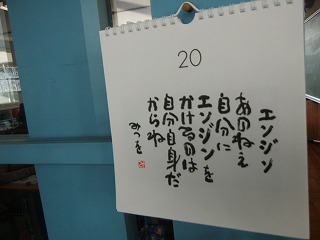 20
エンジン
あのねえ
自分に
エンジンを
かけるのは
自分自身だ
からね
みつを